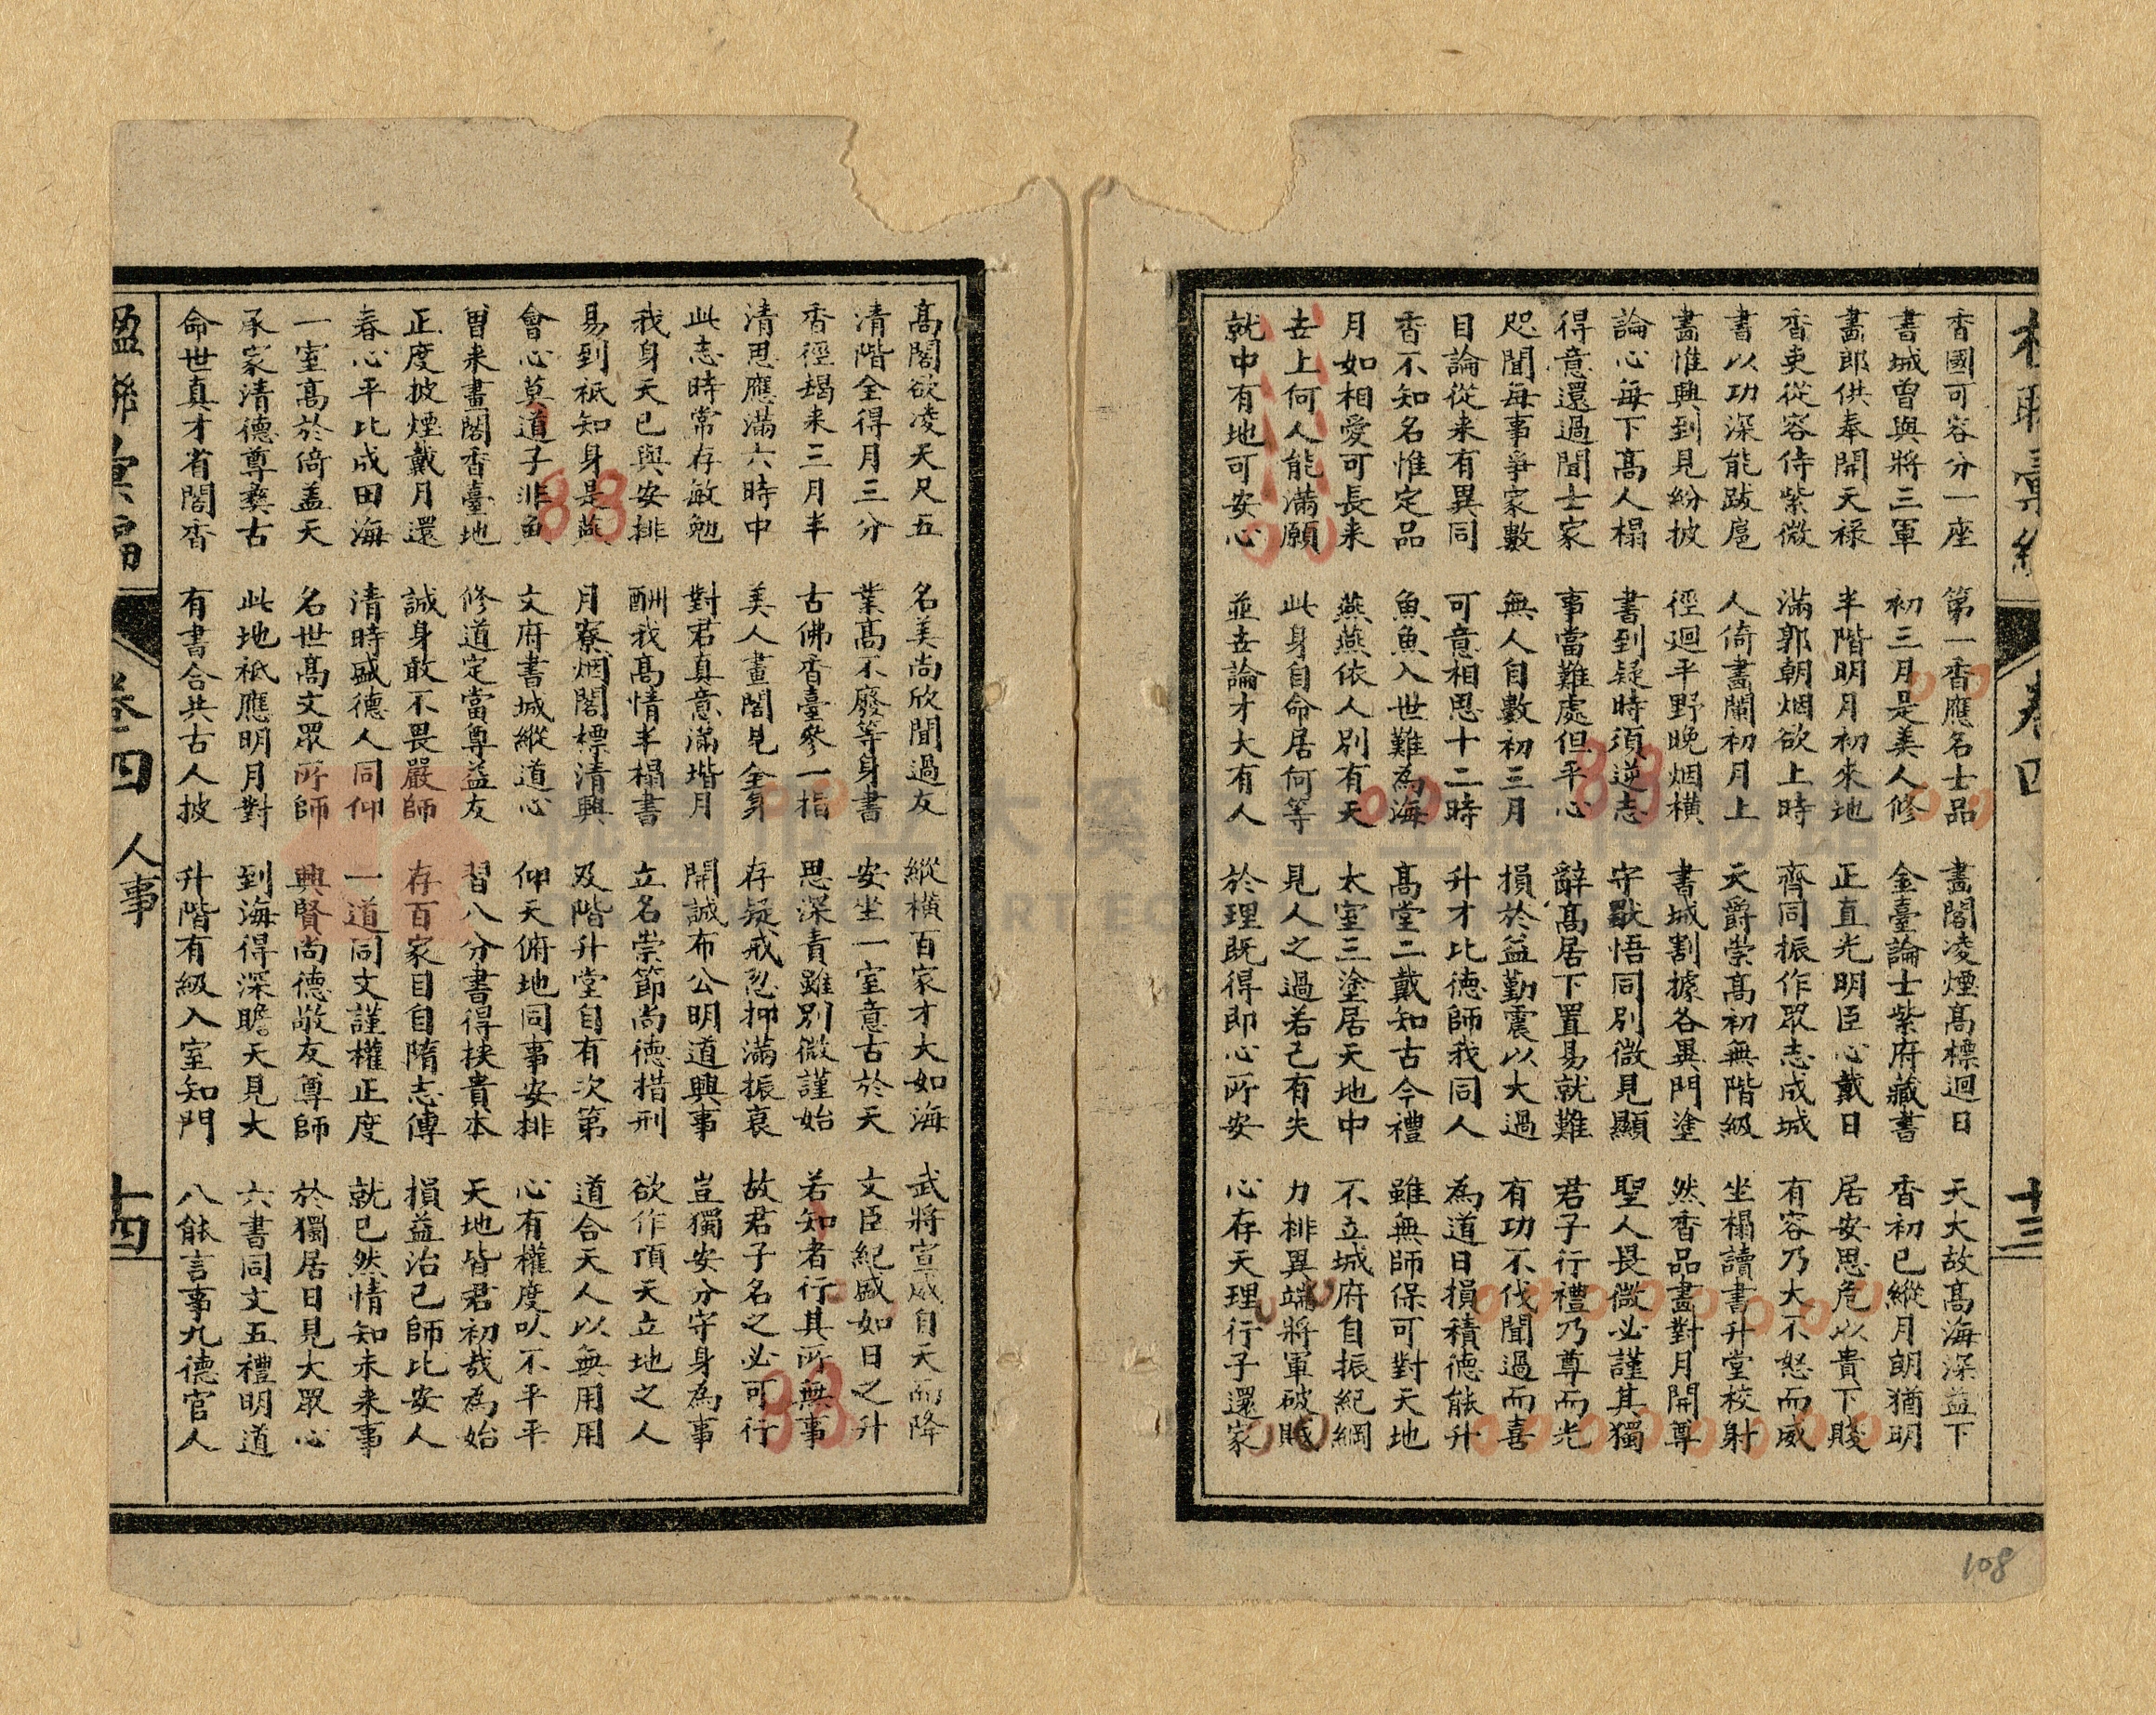 卷四 十三
香國可容分一座 第一香應名士品 畫閣凌煙高標迴日 天大故高海深益下
書城曾與將三軍 初三月是美人修 金臺論士紫府藏書 香初已縱月朗猶明
畫郎供奉開天祿 半階明月初來地 正直光明臣心戴日 居安思危以貴下賤
香吏從容侍紫微 滿郭朝烟欲上時 齊同振作眾志成城 有容乃大不怒而威
書以功深能跋扈 人倚畫闌初月上 天爵崇高初無階級 坐榻讀書升堂校射
畵惟興到見紛披 徑迴平野晚烟橫 書城割據各異門塗 然香品畫對月開尊
論心每下高人榻 書到疑時須逆志 守默悟同別微見顯 聖人畏微必謹其獨
得意還過聞士家 事當難處但平心 辭高居下置易就難 君子行禮乃尊而光
咫聞每事爭家數 無人自數初三月 損於益勤震以大過 有功不伐聞過而喜
目論從来有異同 可意相思十二時 升才比德師我同人 為道日損積德能升
香不知名惟定品 魚魚入世難為海 高堂二戴知古今禮 雖無師保可對天地
月如相愛可長来 燕燕依人別有天 太室三塗居天地中 不立城府自振紀綱
世上何人能滿願 此身自命居何等 見人之過若己有失 力排異端將軍破賊
就中有地可安心 並世論才大有人 於理既得即心所安 心存天理行子還家
高閣欲凌天尺五 名美尚欣聞過友 縱橫百家才大如海 武將宣威自天而降
清階全得月三分 業高不廢等身書 安坐一室意古於天 文臣紀盛如日之升
香徑朅来三月半 古佛香臺參一指 思深責雖別微謹始 若知者行其所無事
清思應滿六時中 美人畫閣見全身 存疑戒忽抑滿振衰 故君子名之必可行
此志時常存敏勉 對君真意滿堦月 開誠布公明道興事 豈獨安分守身為事
我身天已與安排 酬我高情半榻書 立名崇節尚德措刑 欲作頂天立地之人
易到祇知身是燕 月寮烟閣標清興 及階升堂自有次第 道合天人以無用用
會心莫道子非魚 文府書城縱道心 仰天俯地同事安排 心有權度叺不平平
曽来畫閣香臺地 修道定當尊益友 習八分書得挟貴本 天地皆君初哉為始
正度披煙戴月還 誠身敢不畏嚴師 存百家目自隋志傳 損益治己師比安人
春心平比成田海 清時盛德人同仰 一道同文謹權正度 就已然情知未来事
一室高於倚盖天 名世高文眾所師 興賢尚德敬友尊師 於獨居日見大眾心
承家清德尊彝古 此地祇應明月對 到海得深瞻天見大 六書同文五禮明道
命世真才省閣香 有書合共古人披 升階有級入室知門 八能言事九德官人
楹聯彙編 卷四 人事 十四
108